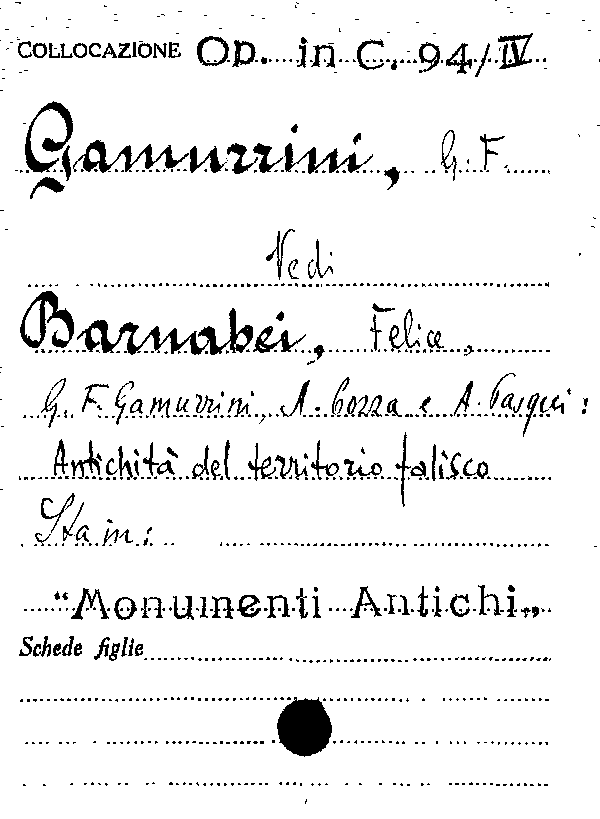 COLLOCAZIONE Op. in C. 94/IV
Gamurrini, G. F.
Vedi
Barnabei, Felice,
G. F. Gamurrini, A. Cozza e A. Pasqui:
Antichità del territorio falisco
Sta in:
"Monumenti Antichi„
Schede figlie